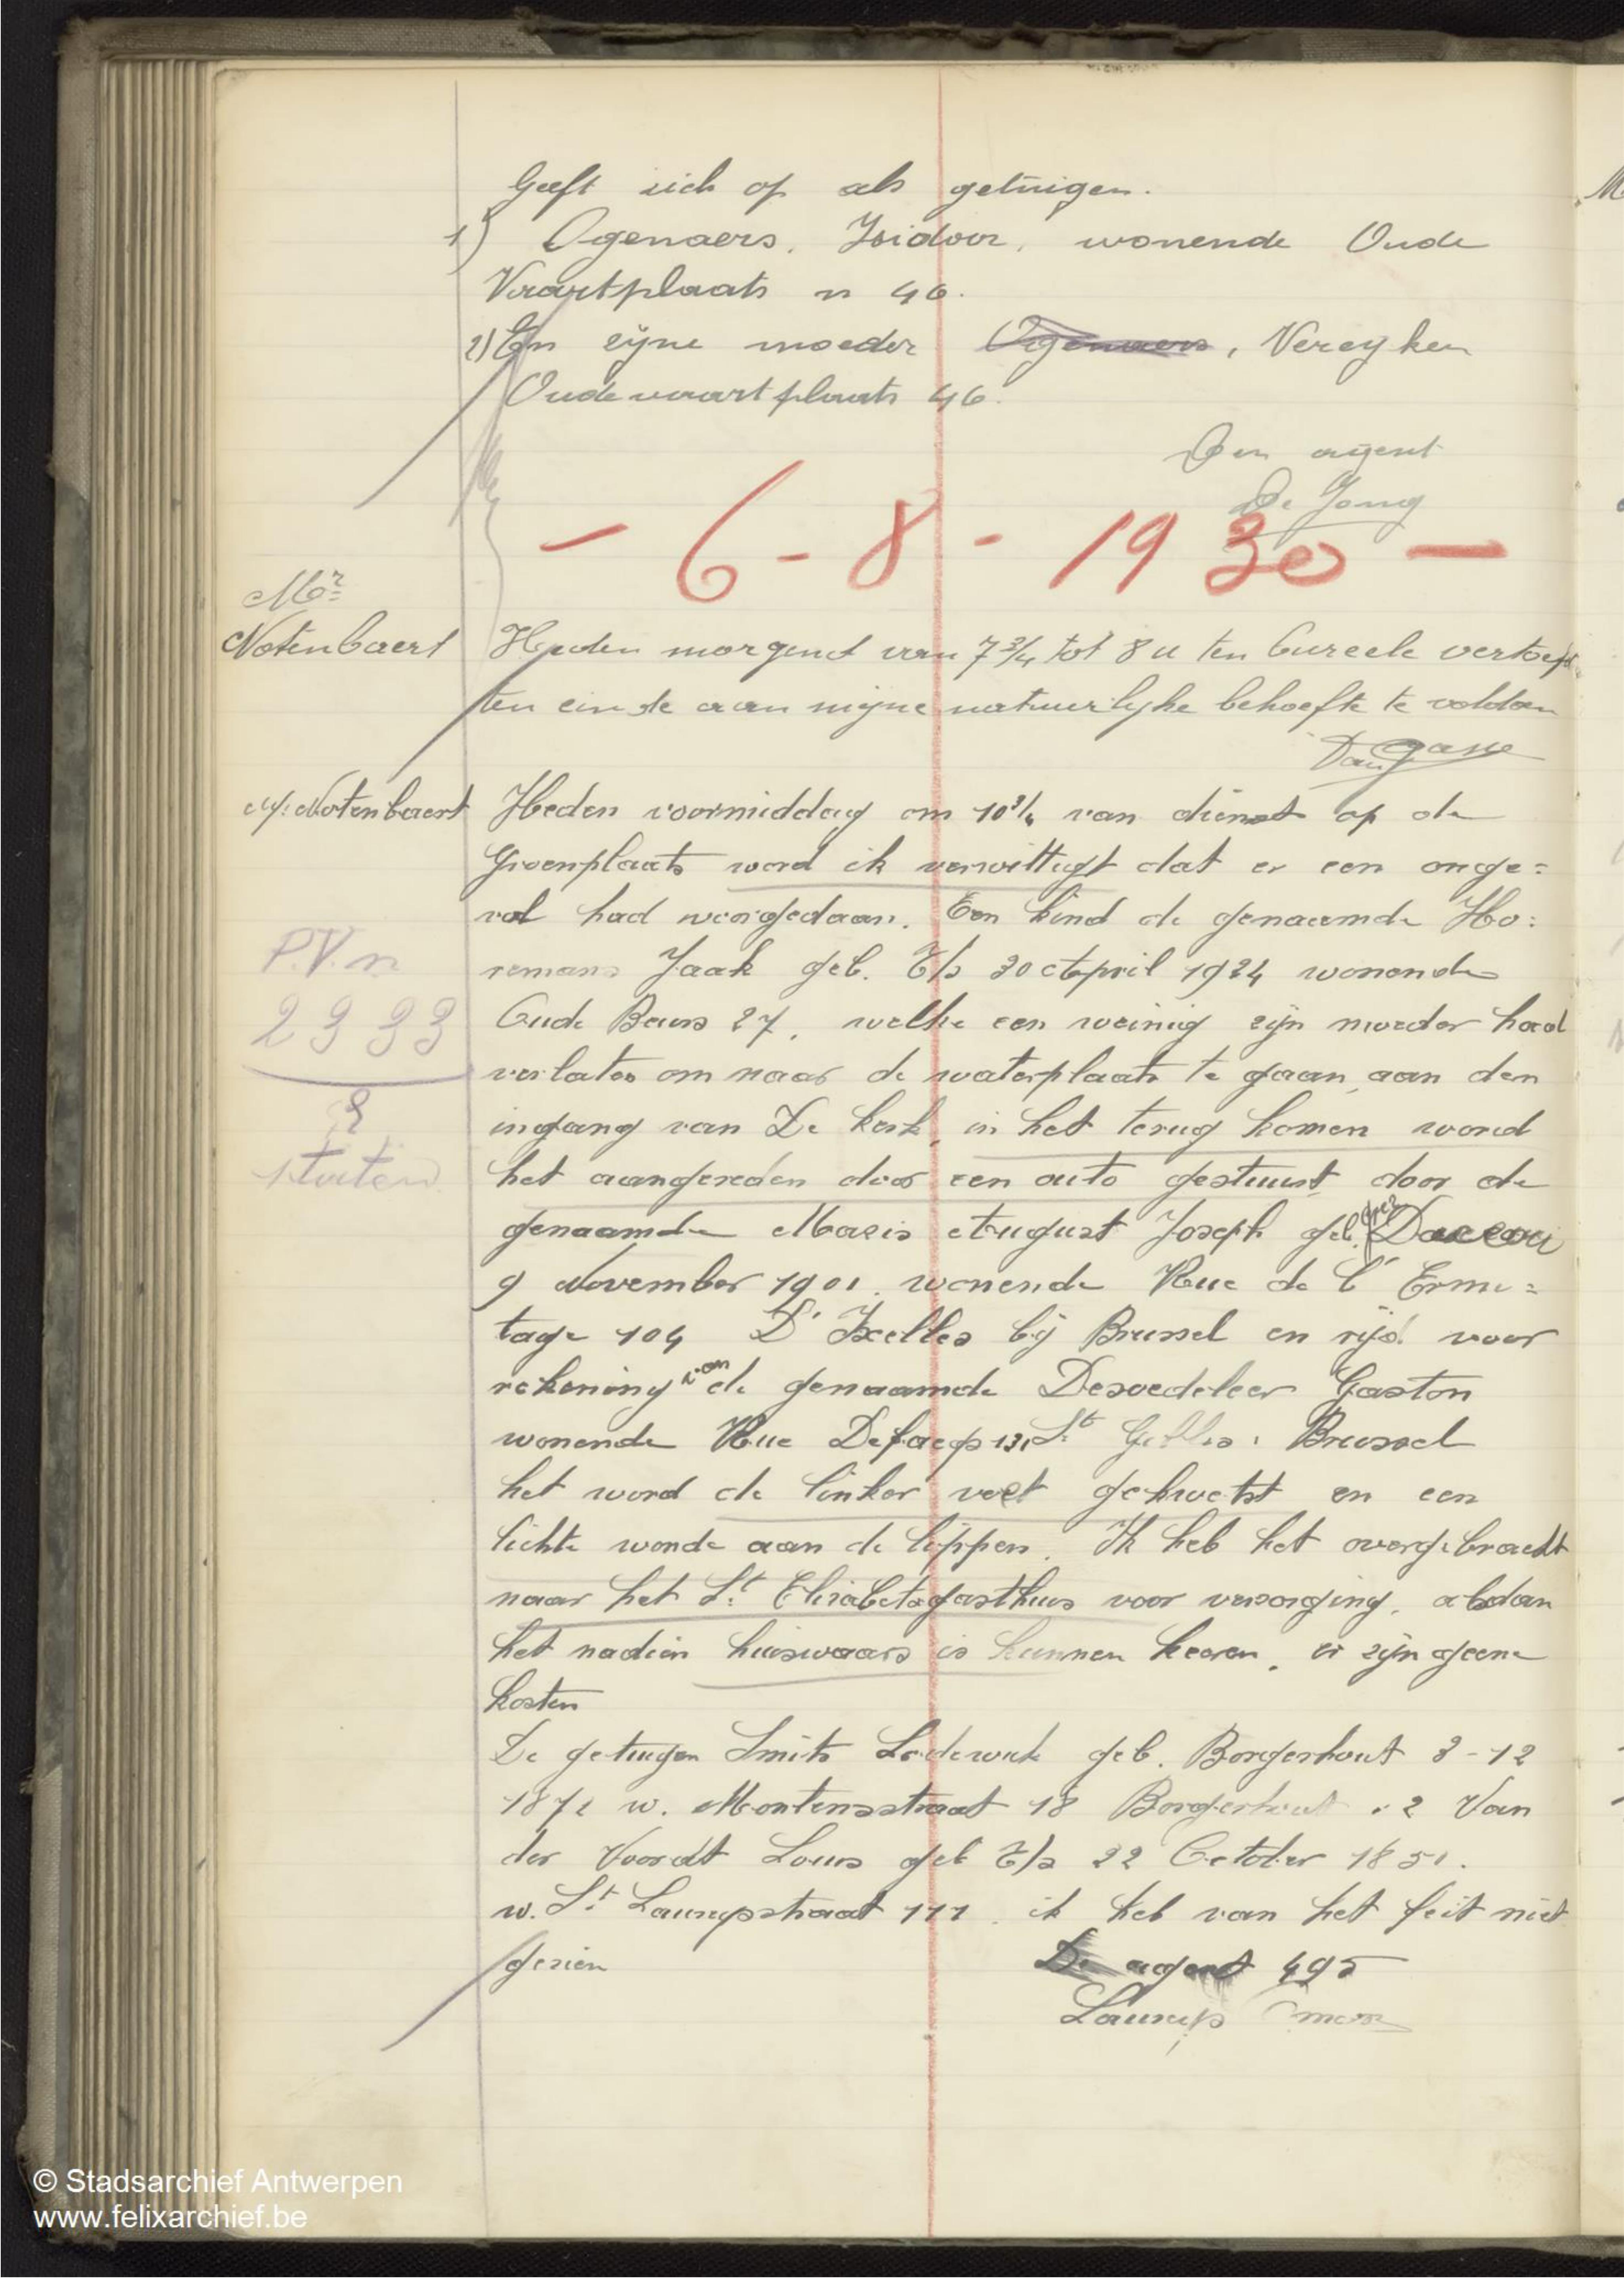 Geeft zich op als getuigen.
1) Ogenaers, Isidoor, wonende Oude
Vaartplaats n 46.
2) En zijne moeder Ogenaers, Vereyken
Oudevaartplaats 46.
Den agent
De Jong
- 6 - 8 - 1930 -
Mr
Notenbaert
Heden morgend van 7 3/4 tot 8 u ten bureele vertoefd
ten einde aan mijne natuurlijke behoefte te voldoen
M. Notenbaert
Heden voormiddag om 10 3/4 van dienst op de
Groenplaats word ik verwittigt dat er een onge=
val had voorgedaan. Een kind de genaamde Ho:
remans Jaak geb. A/s 30 April 1924 wonende
Oude Beurs 27, welke een weinig zijn moeder had
verlaten om naar de waterplaats te gaan aan den
ingang van De kerk, in het terug komen word
het aangereden door een auto gestuurt door de
genaamde Maris August Joseph geb.
9 November 1901. wonende Rue de l' Ermi=
tage 104 D' Ixelles bij Brussel en rijd voor
rekening van de genaamde Desvedeleer Gaston
wonende Rue Defacqs 131 St Gilles. Brussel
het word de linker voet gekwetst en een
lichte wonde aan de lippen. Ik heb het overgebracht
naar het St. Elisabetsgasthuis voor verzorging, alsdan
het nadien huiswaars is kunnen keeren, er zijn geene
kosten
De getuigen Smits Lodewik geb. Borgerhout 3-12
1872 w. Montensstraat 18 Borgerhout. 2 Van
der Voordt Louis geb A/s 22 October 1851.
w. St. Laureysstraat 111. ik heb van het feit niet
gezien
De agent 495
Laureys
P.V. n
2993
8
© Stadsarchief Antwerpen
www.felixarchief.be